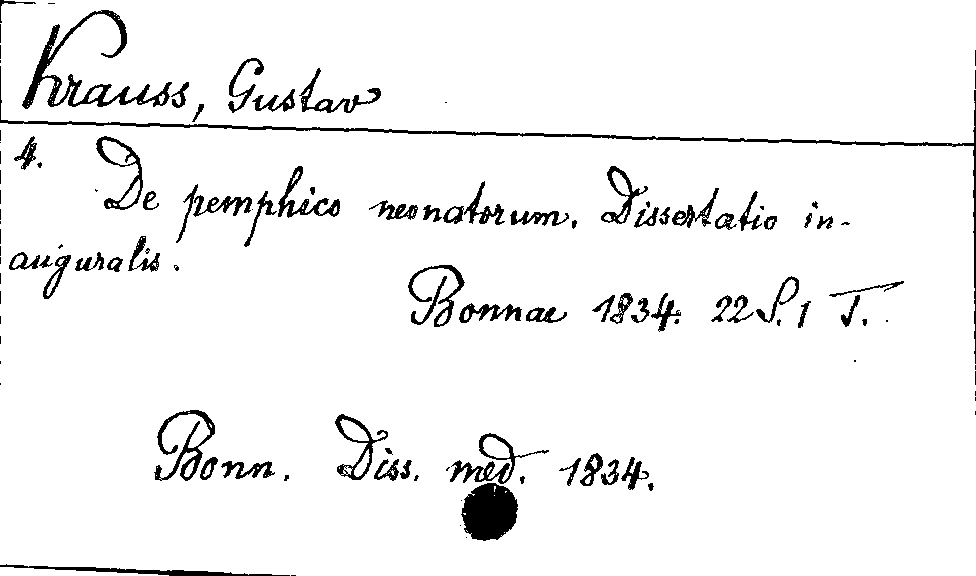 Krauss, Gustav
4.
De pemphico neonatorum. Dissertatio in-
auguralis.
Bonnae 1834. 22 S. 1 T.
Bonn. Diss. med. 1834.